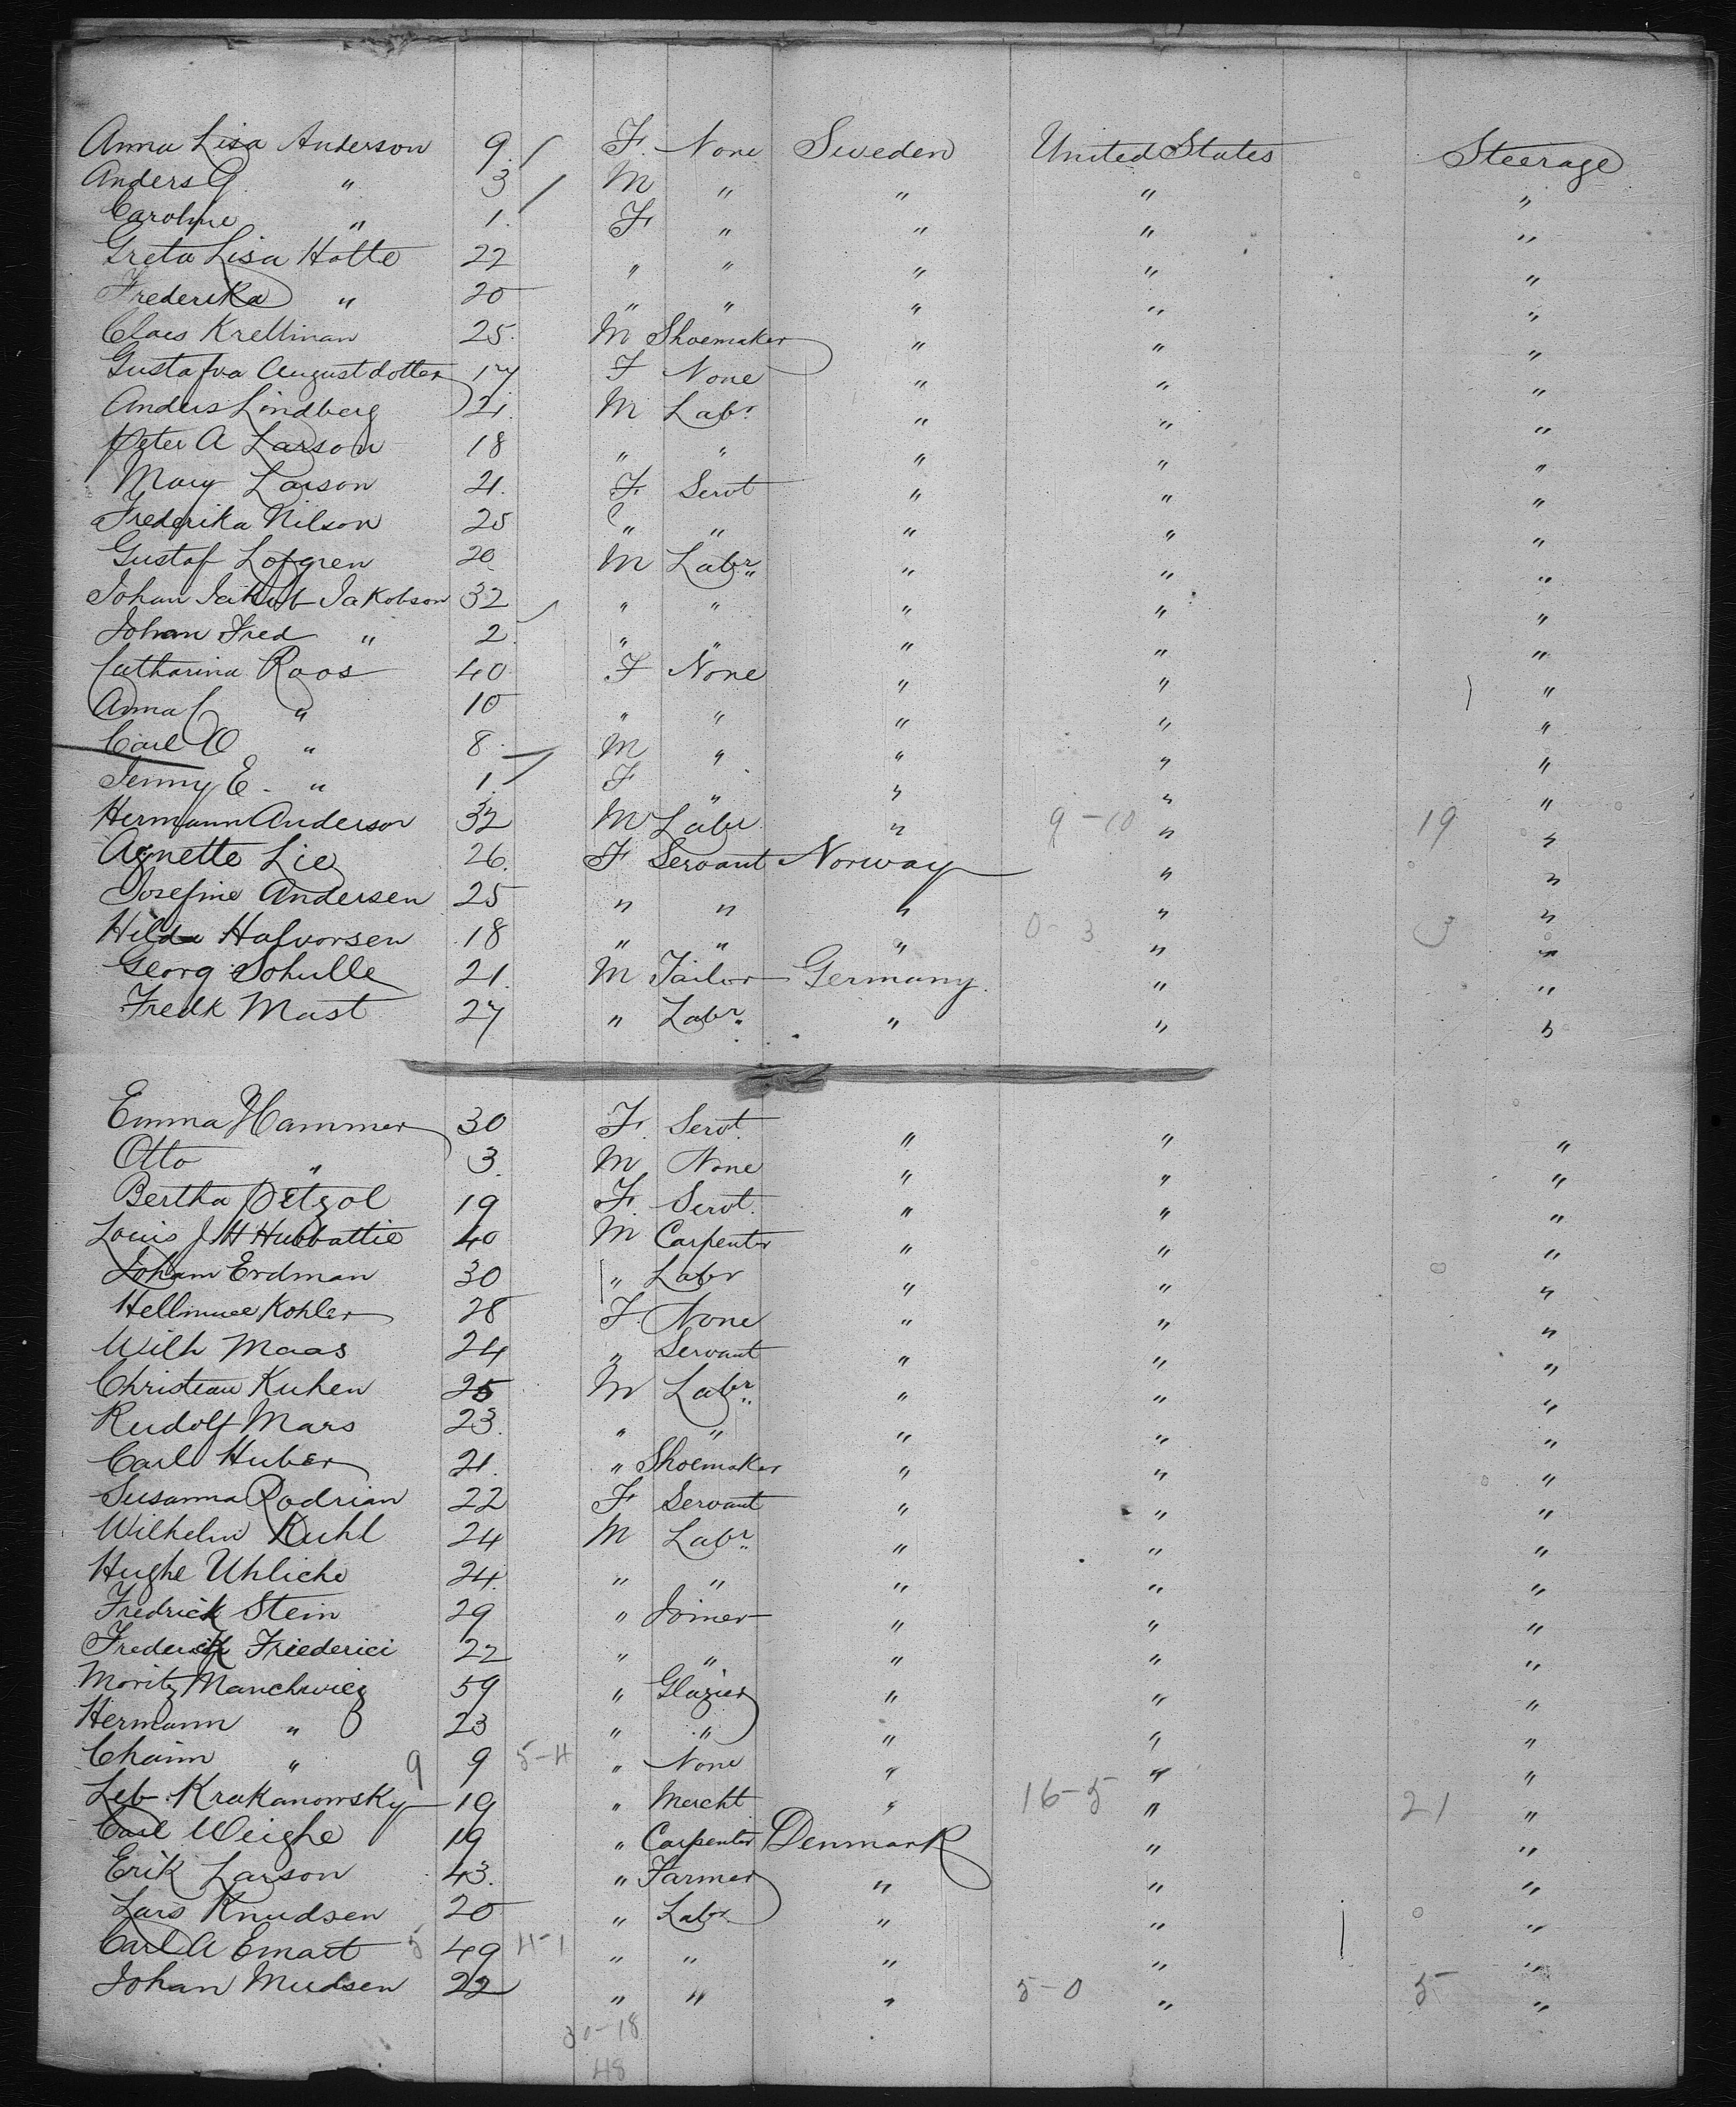 Anna Lisa Anderson 9 / F. None Sweden United States Steerage
Anders G. " 3 / M " " " "
Caroline " 1. F " " " "
Greta Lisa Hotte 22 " " " " "
Frederika " 20 " " " " "
Claes Krellman 25. M Shoemaker " " "
Gustafva Augustdotter 17 F None " " "
Anders Lindberg 21. M Labr " " "
Peter A Larson 18 " " " " "
Mary Larson 21. F Servt " " "
Frederika Nilson 25 " " " " "
Gustaf Lofgren 20 M Labr " " "
Johan Jakob Jakobson 32 " " " " "
Johan Fred " 2 / " " " " "
Catharina Roos 40 F None " " "
Anna C " 10 " " " " "
Carl O " 8 M " " " "
Jenny E. " 1. / F " " " "
Hermann Anderson 32 M Labr " 9-10 " 19 "
Agnette Lie 26. F Servant Norway " "
Josefine Andersen 25 " " " " "
Hilda Halvorsen 18 " " " 0-3 " 3 "
Georg Schulle 21. M Tailor Germany. " "
Fredk Mast 27 " Labr " " "
Emma Hammer 30 F. Servt. " " "
Otto " 3. M None " " "
Bertha Petzol 19 F. Servt. " " "
Louis J H Hubbattie 40 M Carpenter " " "
Johann Erdman 30 " Labr " " "
Kohler 28 F. None " " "
Wilh Maas 24 " Servant " " "
Christian Kuhen 25 M Labr " " "
Rudolf Mars 23. " " " " "
Carl Huber 21. " Shoemaker " " "
Susanna Rodrian 22 F Servant " " "
Wilhelm Kuhl 24 M Labr " " "
Hughe Uhliche 24. " " " " "
Fredrick Stein 29 " Joiner " " "
Frederick Friederici 22 " " " " "
Moritz Manchwicz 59 " Glazier " " "
Hermann " 23 " " " " "
Chaim " 9 9 5-4 " None " " "
Leb Krakanowsky 19 " Mercht " 16-5 " 21 "
Carl Weighe 19 " Carpenter Denmark " "
Erik Larson 43. " Farmer " " "
Lars Knudsen 20 " Labr " " "
Carl A Emart 5 49 4-1 " " " " "
Johan Mudsen 22 " " " 5-0 " 5 "
30-18
48